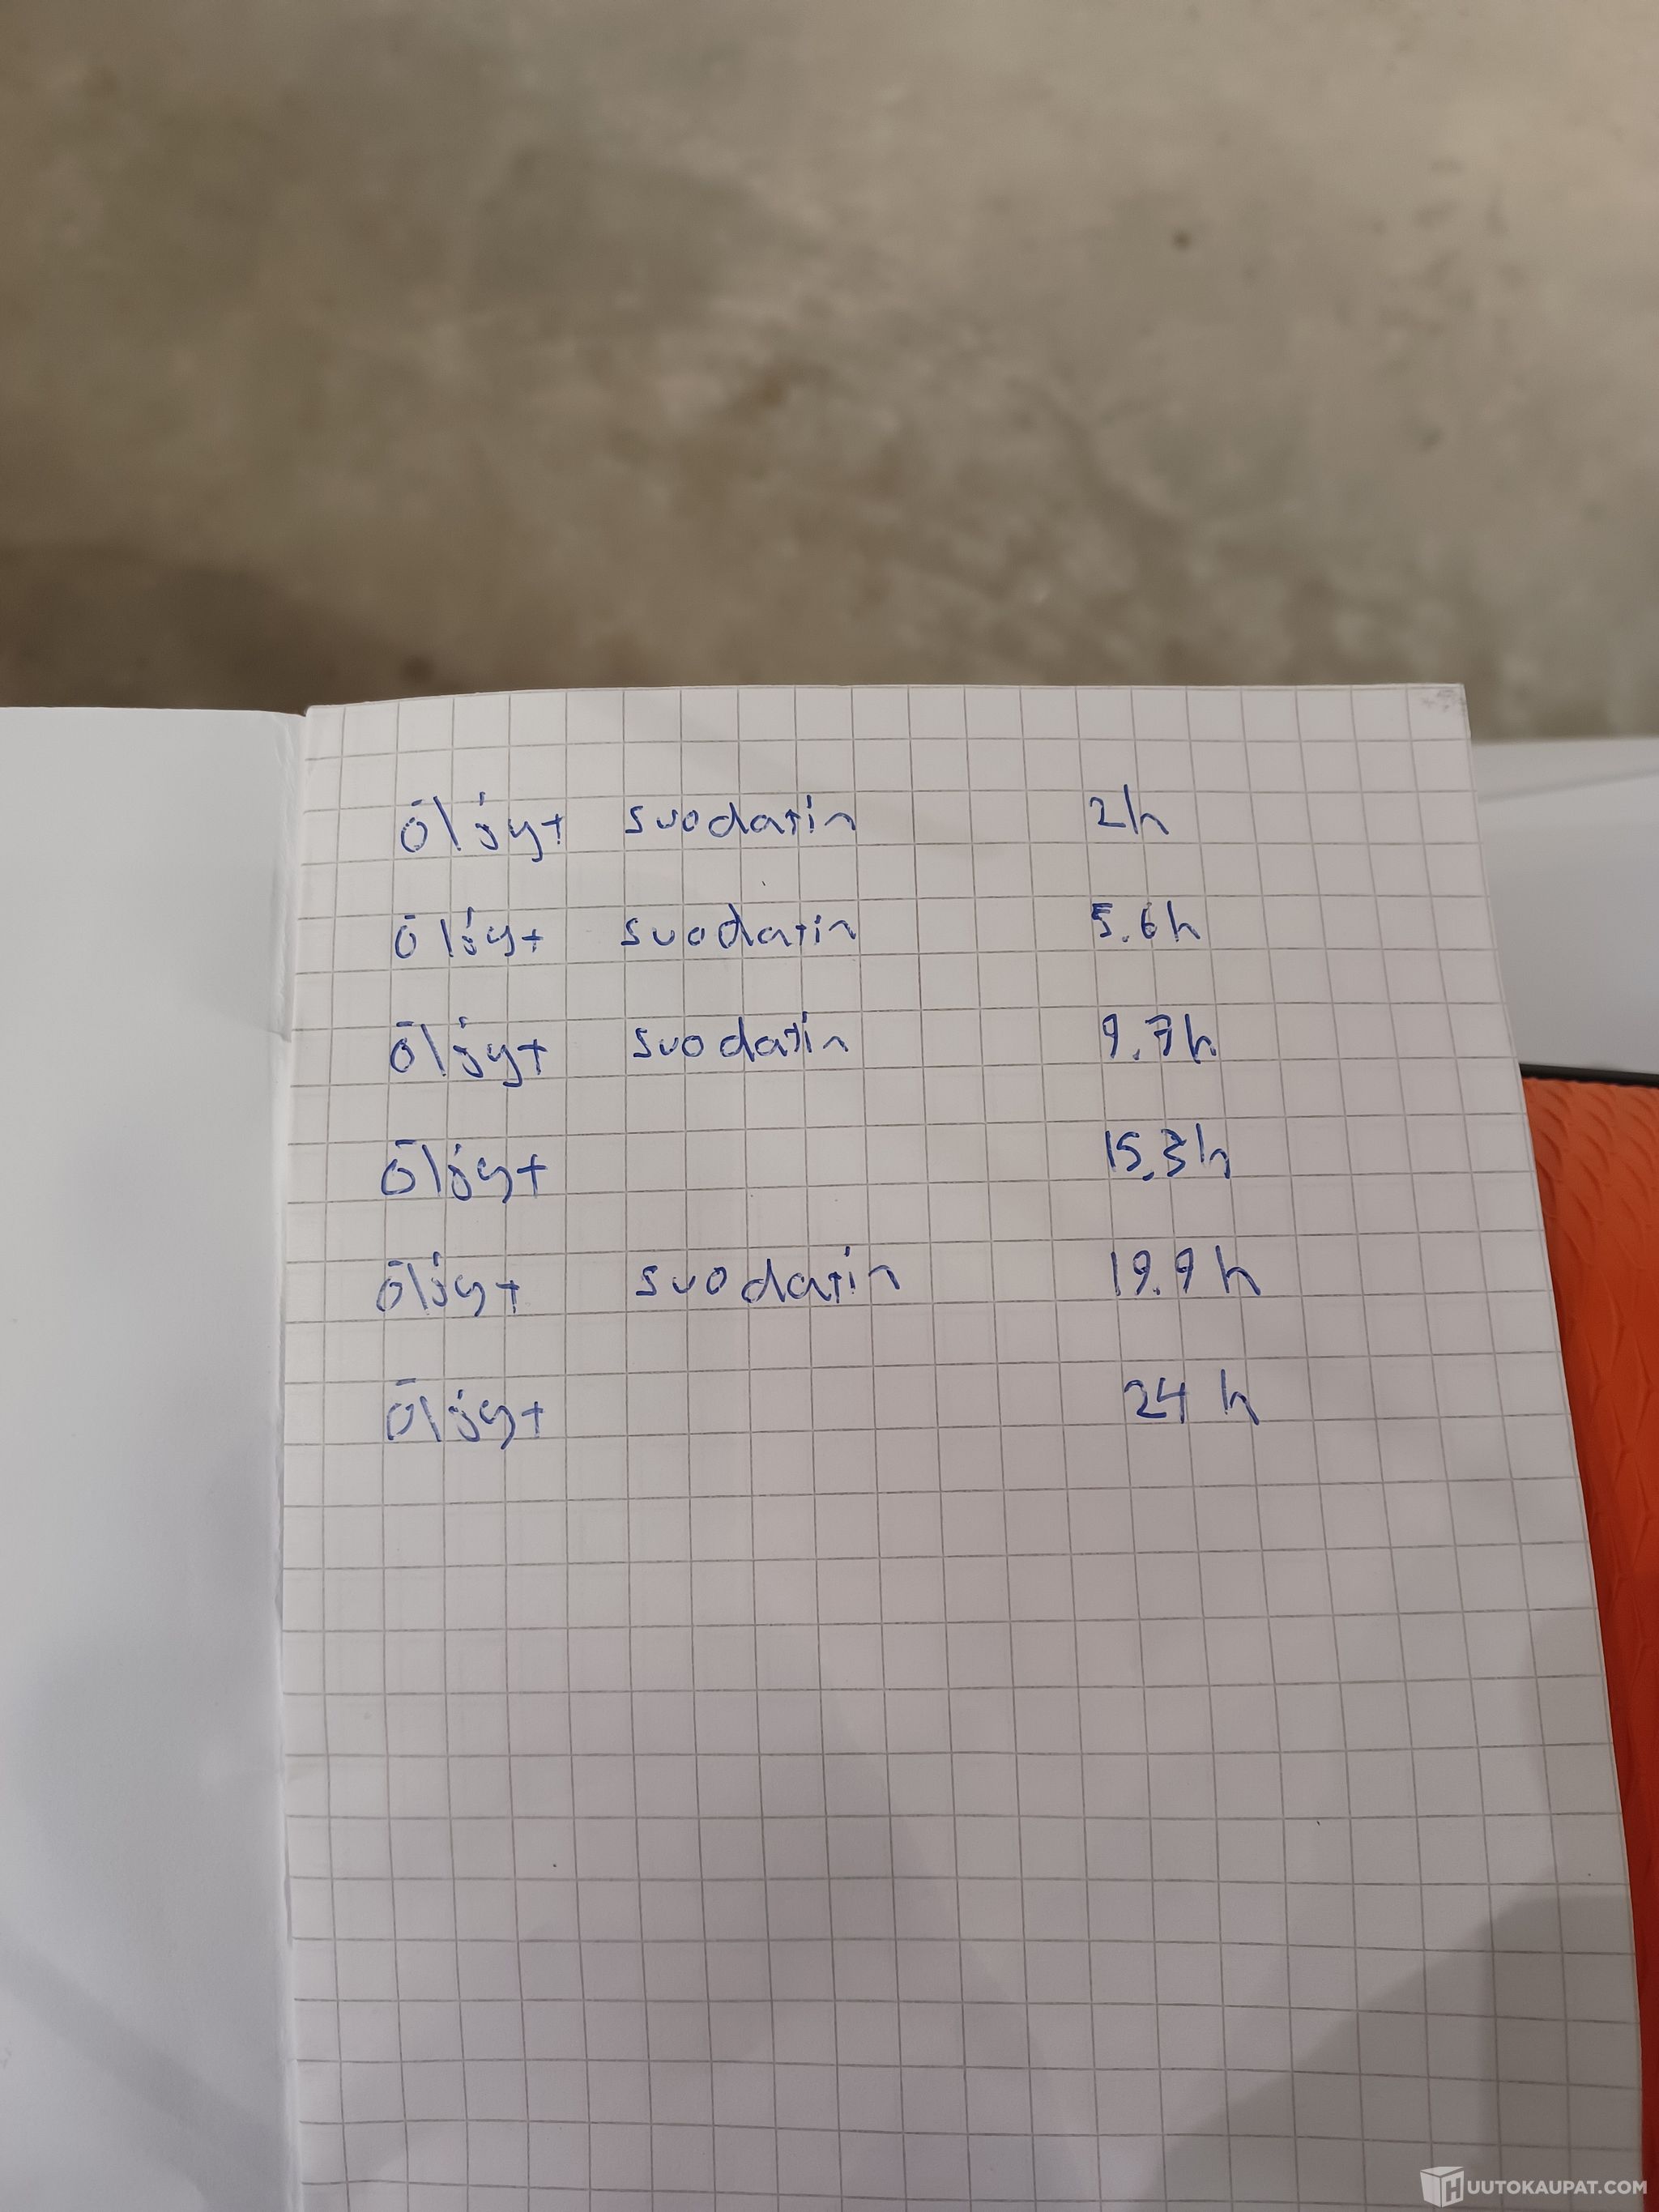 Öljyt suodatin 2h
Öljyt suodatin 5.6h
Öljyt suodatin 9.7h
Öljyt 15.3h
Öljyt suodatin 19.9h
Öljyt 24 h
HUUTOKAUPAT.COM